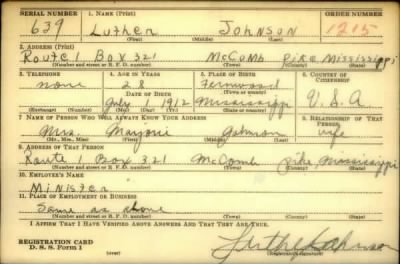 SERIAL NUMBER 1. NAME (Print) ORDER NUMBER
639 Luther Johnson 1215
(First) (Middle) (Last)
2. ADDRESS (Print)
Route 1 Box 321 McComb Pike Mississippi
(Number and street or R. F. D. number) (Town) (County) (State)
3. TELEPHONE 4. AGE IN YEARS 5. PLACE OF BIRTH 6. COUNTRY OF CITIZENSHIP
none 28 Fernwood
DATE OF BIRTH (Town or county)
July 1 1912 Mississippi U.S.A
(Exchange) (Number) (Mo.) (Day) (Yr.) (State or country)
7. NAME OF PERSON WHO WILL ALWAYS KNOW YOUR ADDRESS 8. RELATIONSHIP OF THAT PERSON
Mrs. Marjorie Johnson wife
(Mr., Mrs., Miss) (First) (Middle) (Last)
9. ADDRESS OF THAT PERSON
Route 1 Box 321 McComb Pike Mississippi
(Number and street or R. F. D. number) (Town) (County) (State)
10. EMPLOYER'S NAME
Minister
11. PLACE OF EMPLOYMENT OR BUSINESS
Same as above
(Number and street or R. F. D. number) (Town) (County) (State)
I AFFIRM THAT I HAVE VERIFIED ABOVE ANSWERS AND THAT THEY ARE TRUE.
REGISTRATION CARD
D. S. S. Form 1 (over) Luther Johnson
(Registrant's signature)